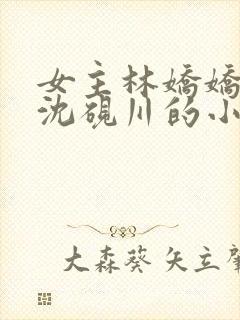 女主林嬌嬌
沈硯川的小
大森葵 矢立肇